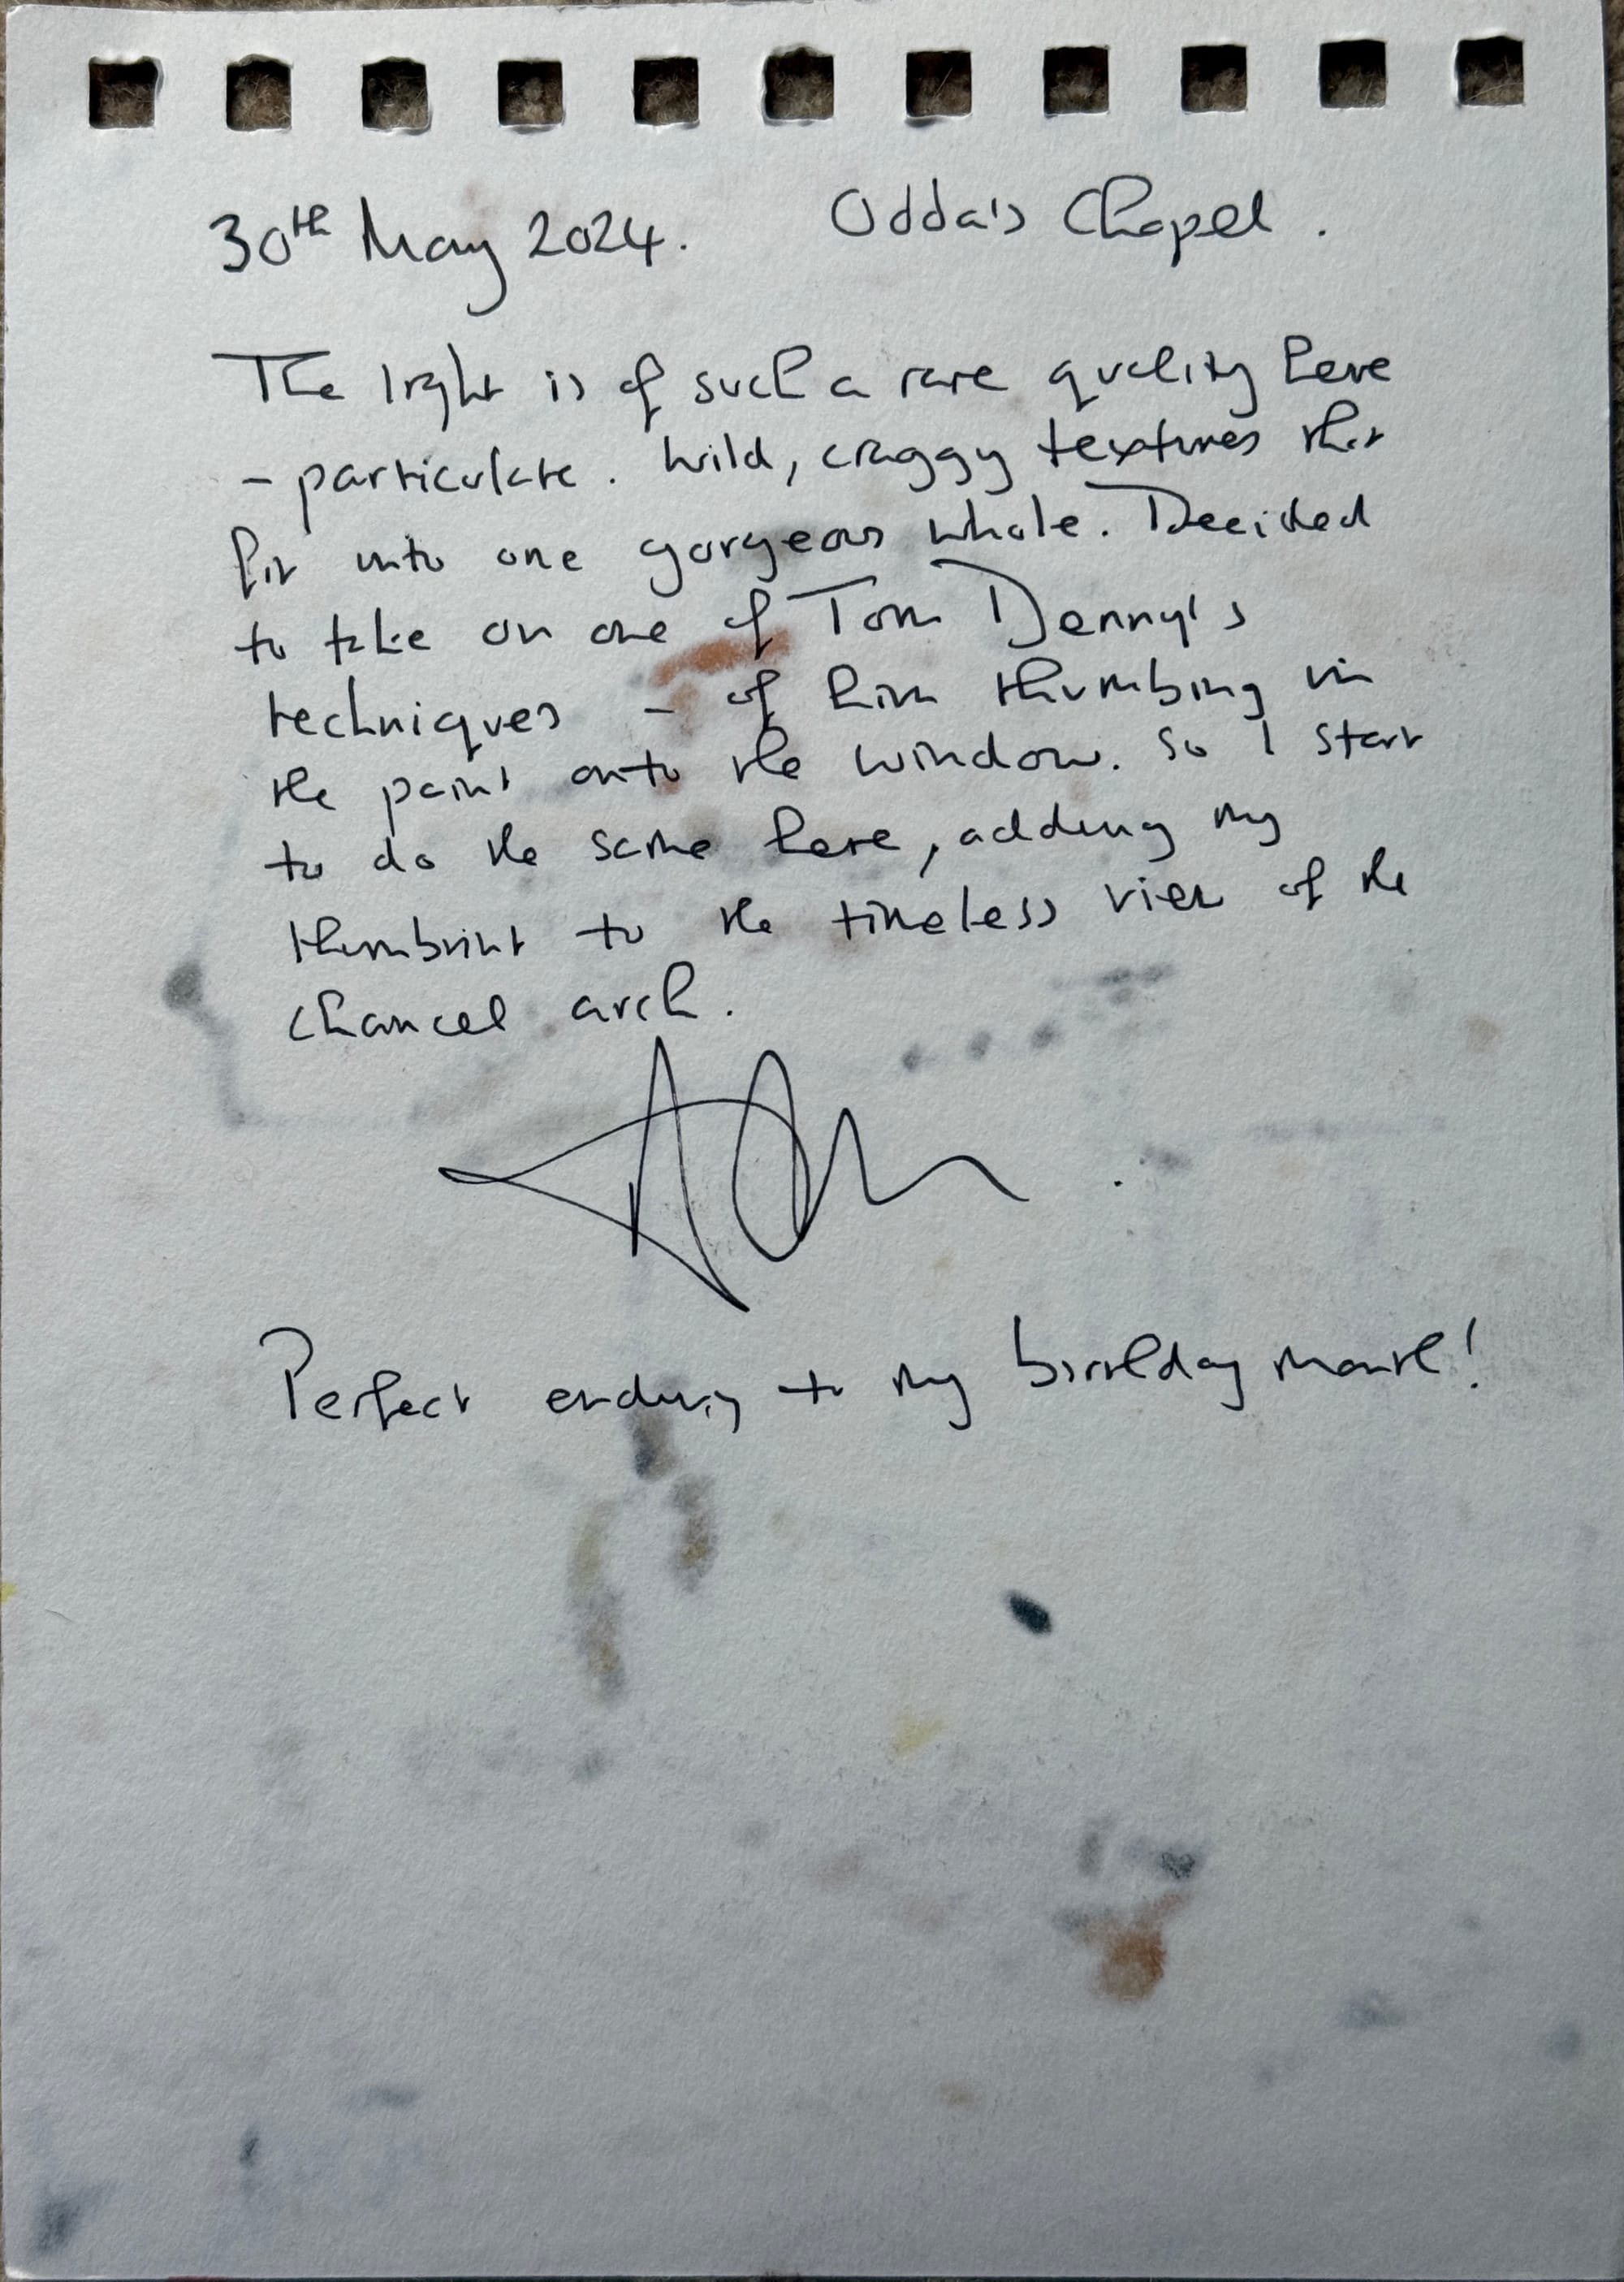 30th May 2024. Odda's Chapel.
The light is of such a rare quality here
- particulate. Wild, craggy textures that
fit into one gorgeous whole. Decided
to take on one of Tom Denny's
techniques - of him thumbing in
the paint onto the window. So I start
to do the same here, adding my
thumbprint to the timeless view of the
chancel arch.
Perfect ending to my birthday month!